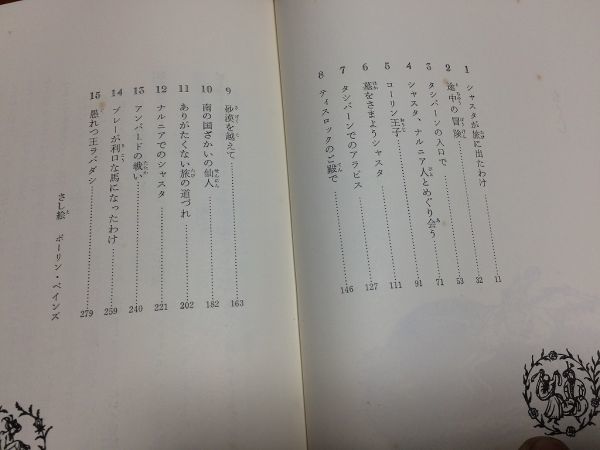 1 シャスタが旅に出たわけ 11
2 途中の冒険 32
3 タシバーンの入口で 53
4 シャスタ、ナルニア人とめぐり会う 71
5 コーリン王子 91
6 墓をさまようシャスタ 111
7 タシバーンでのアラビス 127
8 ティスロックのご殿で 146
9 砂漠を越えて 163
10 南の国ざかいの仙人 182
11 ありがたくない旅の道づれ 202
12 ナルニアでのシャスタ 221
13 アンバードの戦い 240
14 ブレーが利口な馬になったわけ 259
15 愚れつ王ラバダシ 279
さし絵 ポーリン・ベインズ